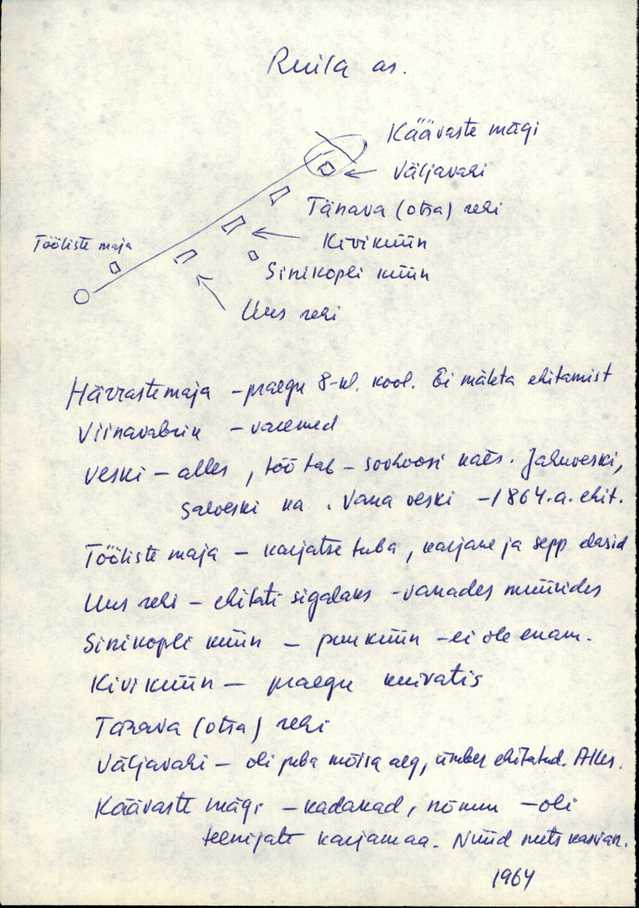 Ruila as.
Käävaste mägi
Väljavahi
Tänava (otsa) rehi
Tööliste maja
Kiviküün
Sinikopli küün
Uus rehi
Härrastemaja – praegu 8-kl. kool. Ei mäleta ehitamist
Viinavabrik – varemed
Veski – alles, töötab – sovhoosi käes. Jahuveski,
Saeveski ka. Vana veski – 1864.a. ehit.
Tööliste maja – karjatse tuba, karjane ja sepp elasid
Uus rehi – ehitati sigalaks – vanades müürides
Sinikopli küün – puuküün – ei ole enam.
Kiviküün – praegu kuivatis
Tänava (otsa) rehi
Väljavahi – oli juba mõisa aeg, ümber ehitatud. Alles.
Käävaste mägi – kadakad, nõmm – oli
teenijate karjamaa. Nüüd mets kasvan.
1964